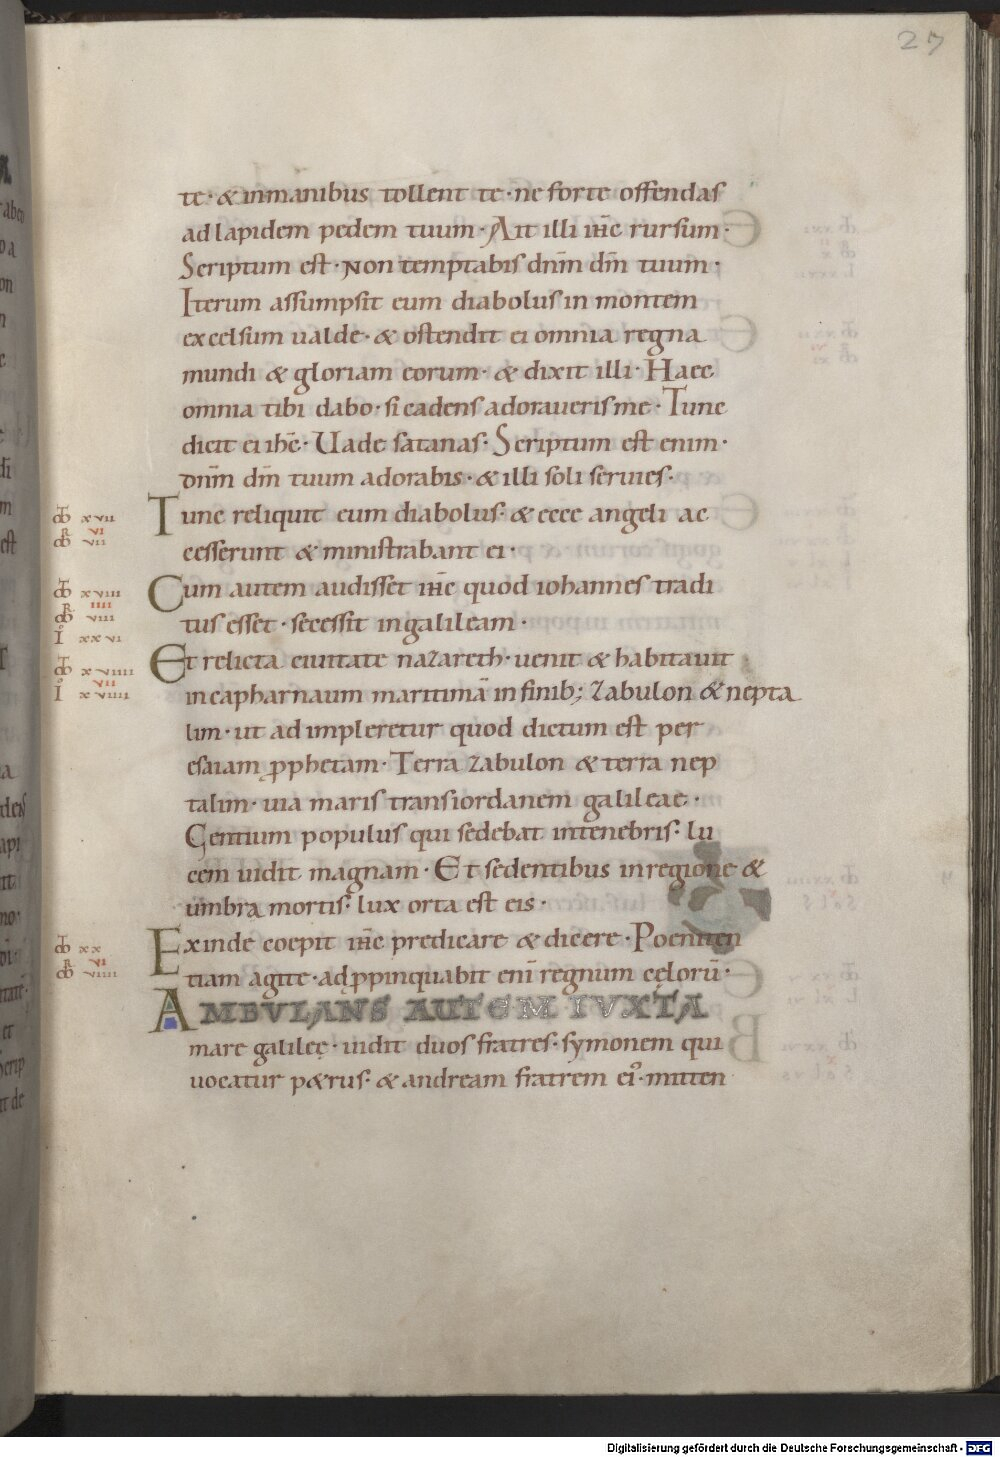 27
te · & inmanibus tollent te · ne forte offendas
ad lapidem pedem tuum · Ait illi ihc̄ rursum ·
Scriptum est · Non temptabis dnm̄ dm̄ tuum ·
Iterum assumpsit eum diabolus in montem
excelsum ualde · & ostendit ei omnia regna
mundi & gloriam eorum · & dixit illi · Haec
omnia tibi dabo · si cadens adoraueris me · Tunc
dicit ei ihc̄ · Uade satanas · Scriptum est enim ·
dnm̄ dm̄ tuum adorabis · & illi soli seruies ·
Tunc reliquit eum diabolus · & ecce angeli ac
cesserunt & ministrabant ei ·
Cum autem audisset ihc̄ quod iohannes tradi
tus esset · secessit in galileam ·
Et relicta ciuitate nazareth · uenit & habitauit
in capharnaum maritimā in finib; zabulon & nepta
lim · ut adimpleretur quod dictum est per
esaiam ꝓphetam · Terra zabulon & terra nep
talim · uia maris transiordanem galileae ·
Gentium populus qui sedebat intenebris · lu
cem uidit magnam · Et sedentibus inregione &
umbra mortis · lux orta est eis ·
Exinde coepit ihc̄ predicare & dicere · Poeniten
tiam agite · adꝓpinquabit eni̅ regnum cęlorū ·
AMBVLANS AUTEM IVXTA
mare galileę · uidit duos fratres · symonem qui
uocatur p&rus · & andream fratrem ei' · mitten
xvii
vi
vii
xviii
iiii
viii
xxvi
xviiii
vii
xviiii
xx
vi
viiii
Digitalisierung gefördert durch die Deutsche Forschungsgemeinschaft - DFG